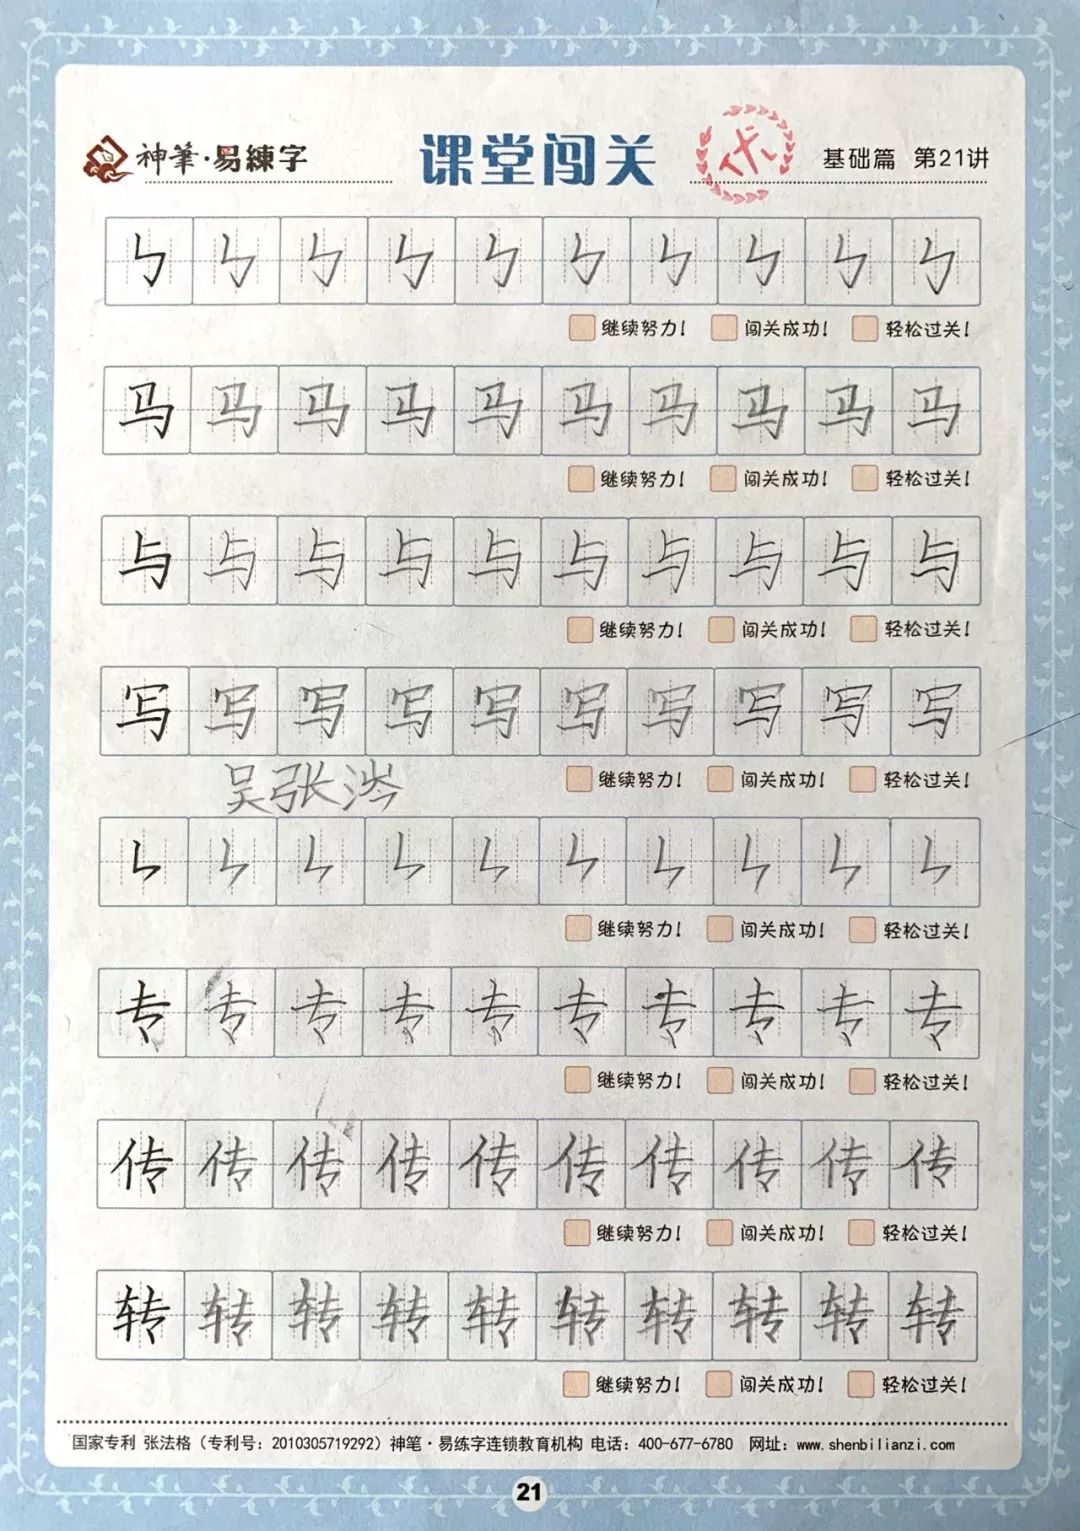 神筆·易練字 课堂闯关 优 基础篇 第21讲
ㄣ ㄣ ㄣ ㄣ ㄣ ㄣ ㄣ ㄣ ㄣ ㄣ
继续努力! 闯关成功! 轻松过关!
马 马 马 马 马 马 马 马 马 马
继续努力! 闯关成功! 轻松过关!
与 与 与 与 与 与 与 与 与 与
继续努力! 闯关成功! 轻松过关!
写 写 写 写 写 写 写 写 写 写
吴张涔 继续努力! 闯关成功! 轻松过关!
继续努力! 闯关成功! 轻松过关!
专 专 专 专 专 专 专 专 专 专
继续努力! 闯关成功! 轻松过关!
传 传 传 传 传 传 传 传 传 传
继续努力! 闯关成功! 轻松过关!
转 转 转 转 转 转 转 转 转 转
继续努力! 闯关成功! 轻松过关!
国家专利 张法格（专利号：2010305719292）神笔·易练字连锁教育机构 电话：400-677-6780 网址：www.shenbilianzi.com
21